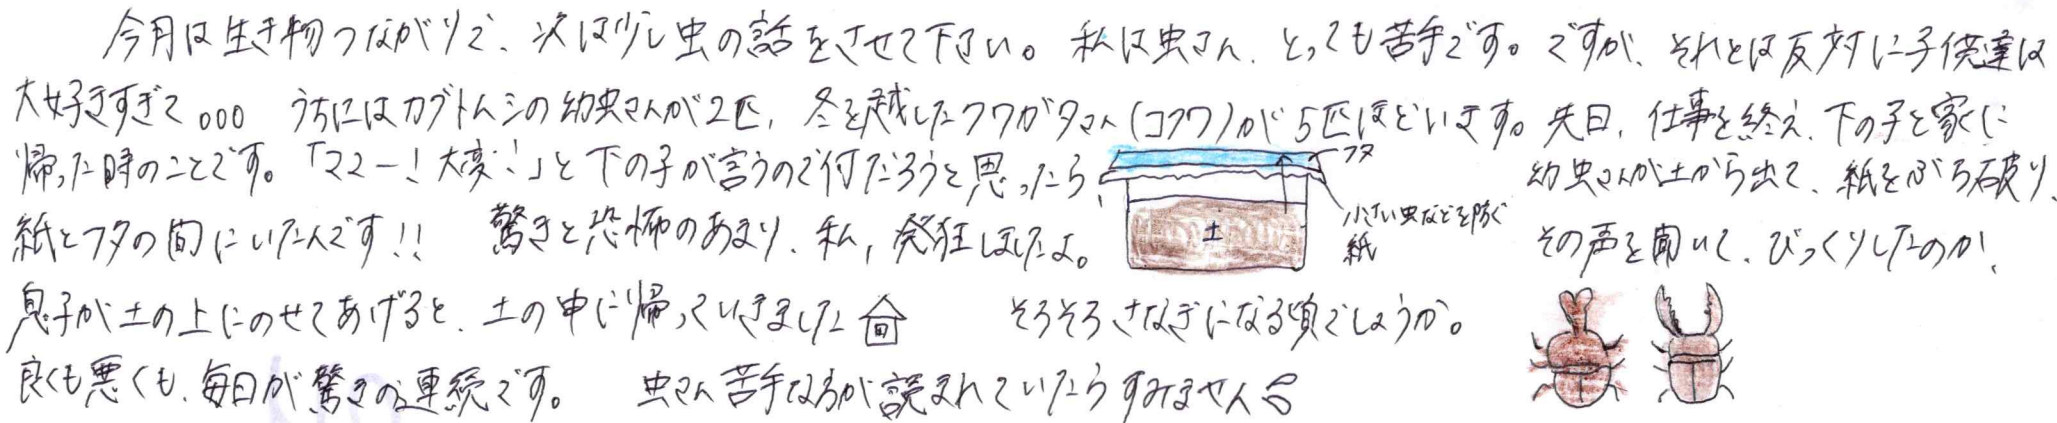 今月は生き物つながりで、次は少し虫の話をさせて下さい。私は虫さん、とっても苦手です。ですが、それとは反対に子供達は
大好きすぎて。。。 うちにはカブトムシの幼虫さんが2匹、冬を越したクワガタさん(コクワ)が5匹ほどいます。先日、仕事を終え、下の子と家に
帰った時のことです。「ママー!大変!」と下の子が言うので何だろうと思ったら、
幼虫さんが土から出て、紙をぶち破り、
紙とフタの間にいたんです!! 驚きと恐怖のあまり、私、発狂しましたよ。
その声を聞いて、びっくりしたのか、
フタ
小さい虫などを防ぐ
紙
土
息子が土の上にのせてあげると、土の中に帰っていきました そろそろさなぎになる頃でしょうか。
良くも悪くも、毎日が驚きの連続です。 虫さん苦手な方が読まれていたらすみません